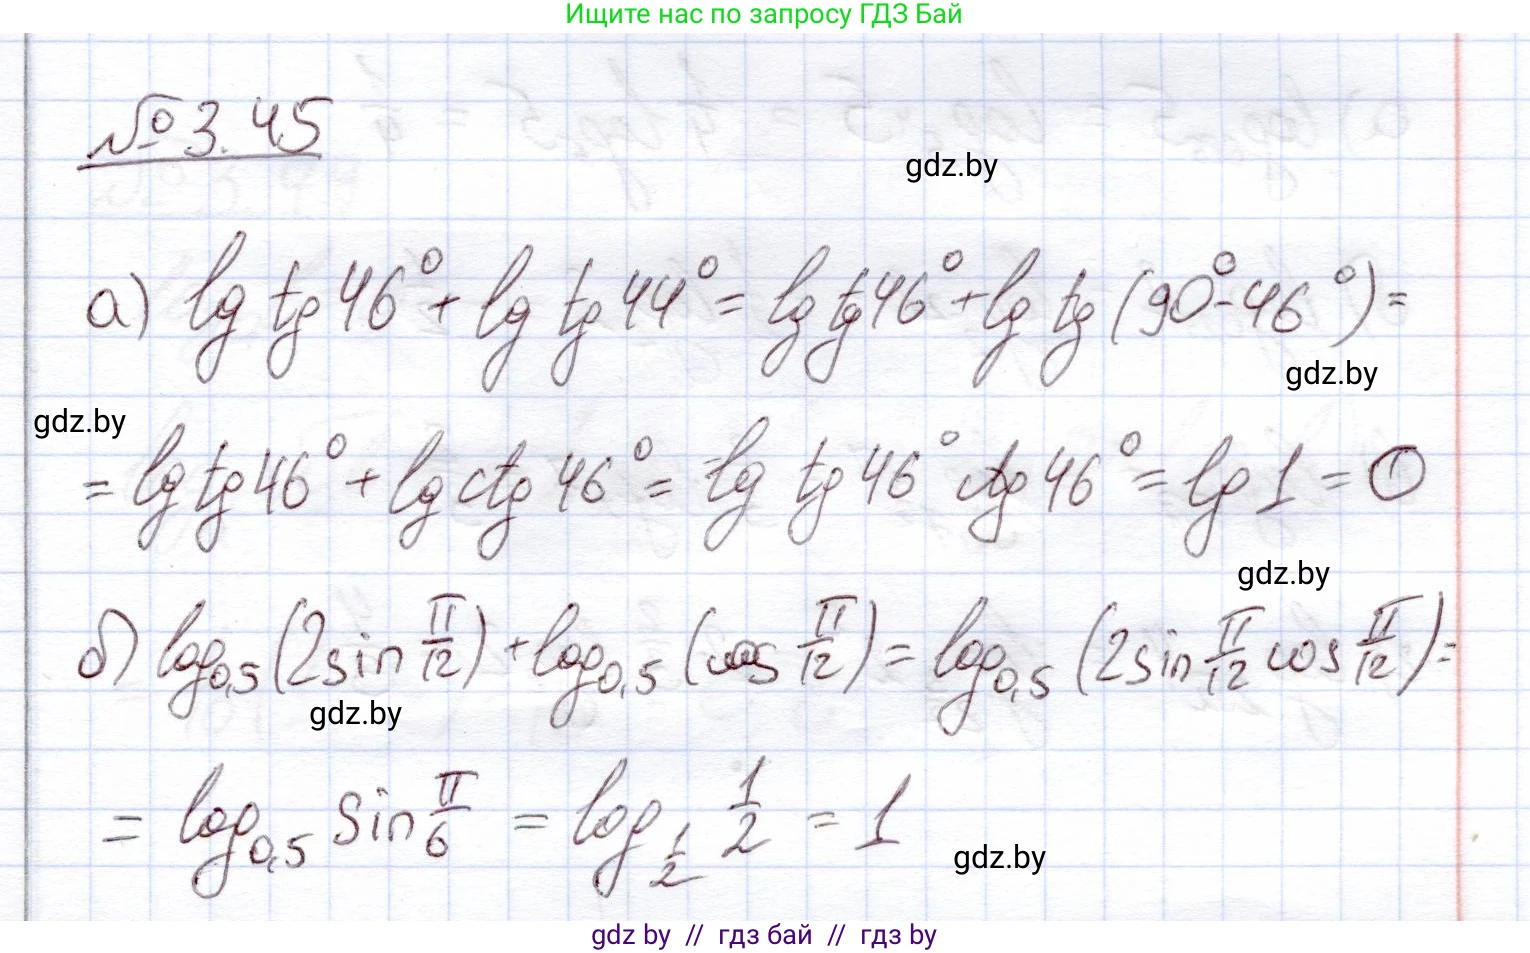 Ищите нас по запросу ГДЗ Бай
№3.45
gdz.by
а) lg tg 46° + lg tg 44° = lg tg 46° + lg tg (90° - 46°) =
gdz.by
gdz.by
= lg tg 46° + lg ctg 46° = lg tg 46° ctg 46° = lg 1 = 0
gdz.by
б) log₀,₅ (2 sin π/12) + log₀,₅ (cos π/12) = log₀,₅ (2 sin π/12 cos π/12) =
gdz.by
= log₀,₅ sin π/6 = log_{1/2} 1/2 = 1
gdz.by
gdz by // гдз бай // гдз by